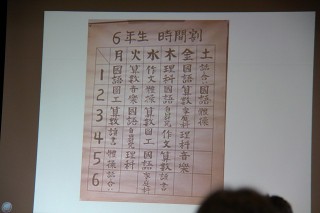 6年生 時間割
月 火 水 木 金 土
1 国語 算数 作文 理科 国語 話合
2 図工 音楽 体操 国語 算数 国語
3 算数 国語 算数 家庭科 体操
4 読書 図工 作文 理科
5 体操 理科 国語 算数 音楽
6 話合 家庭科 読書